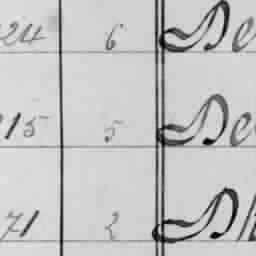 24 6 De
215 5 De
71 2 D